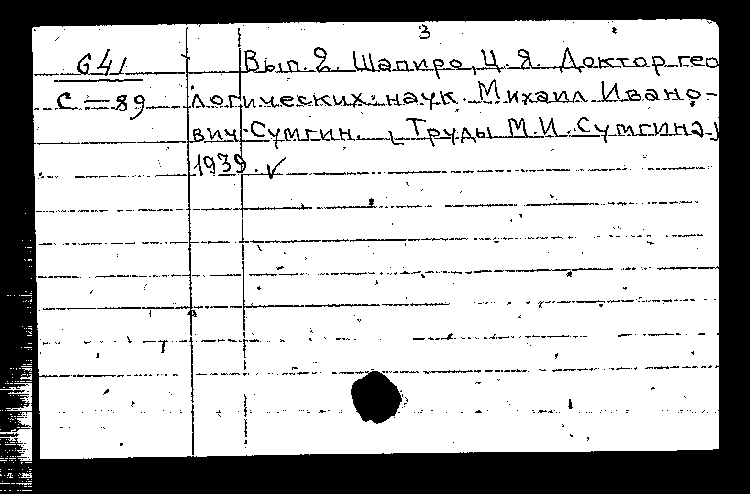 3
641
С—89
Вып. 2. Шапиро, Ц. Я. Доктор гео
логических наук Михаил Ивано-
вич Сумгин. [Труды М.И. Сумгина]
1939. ✓